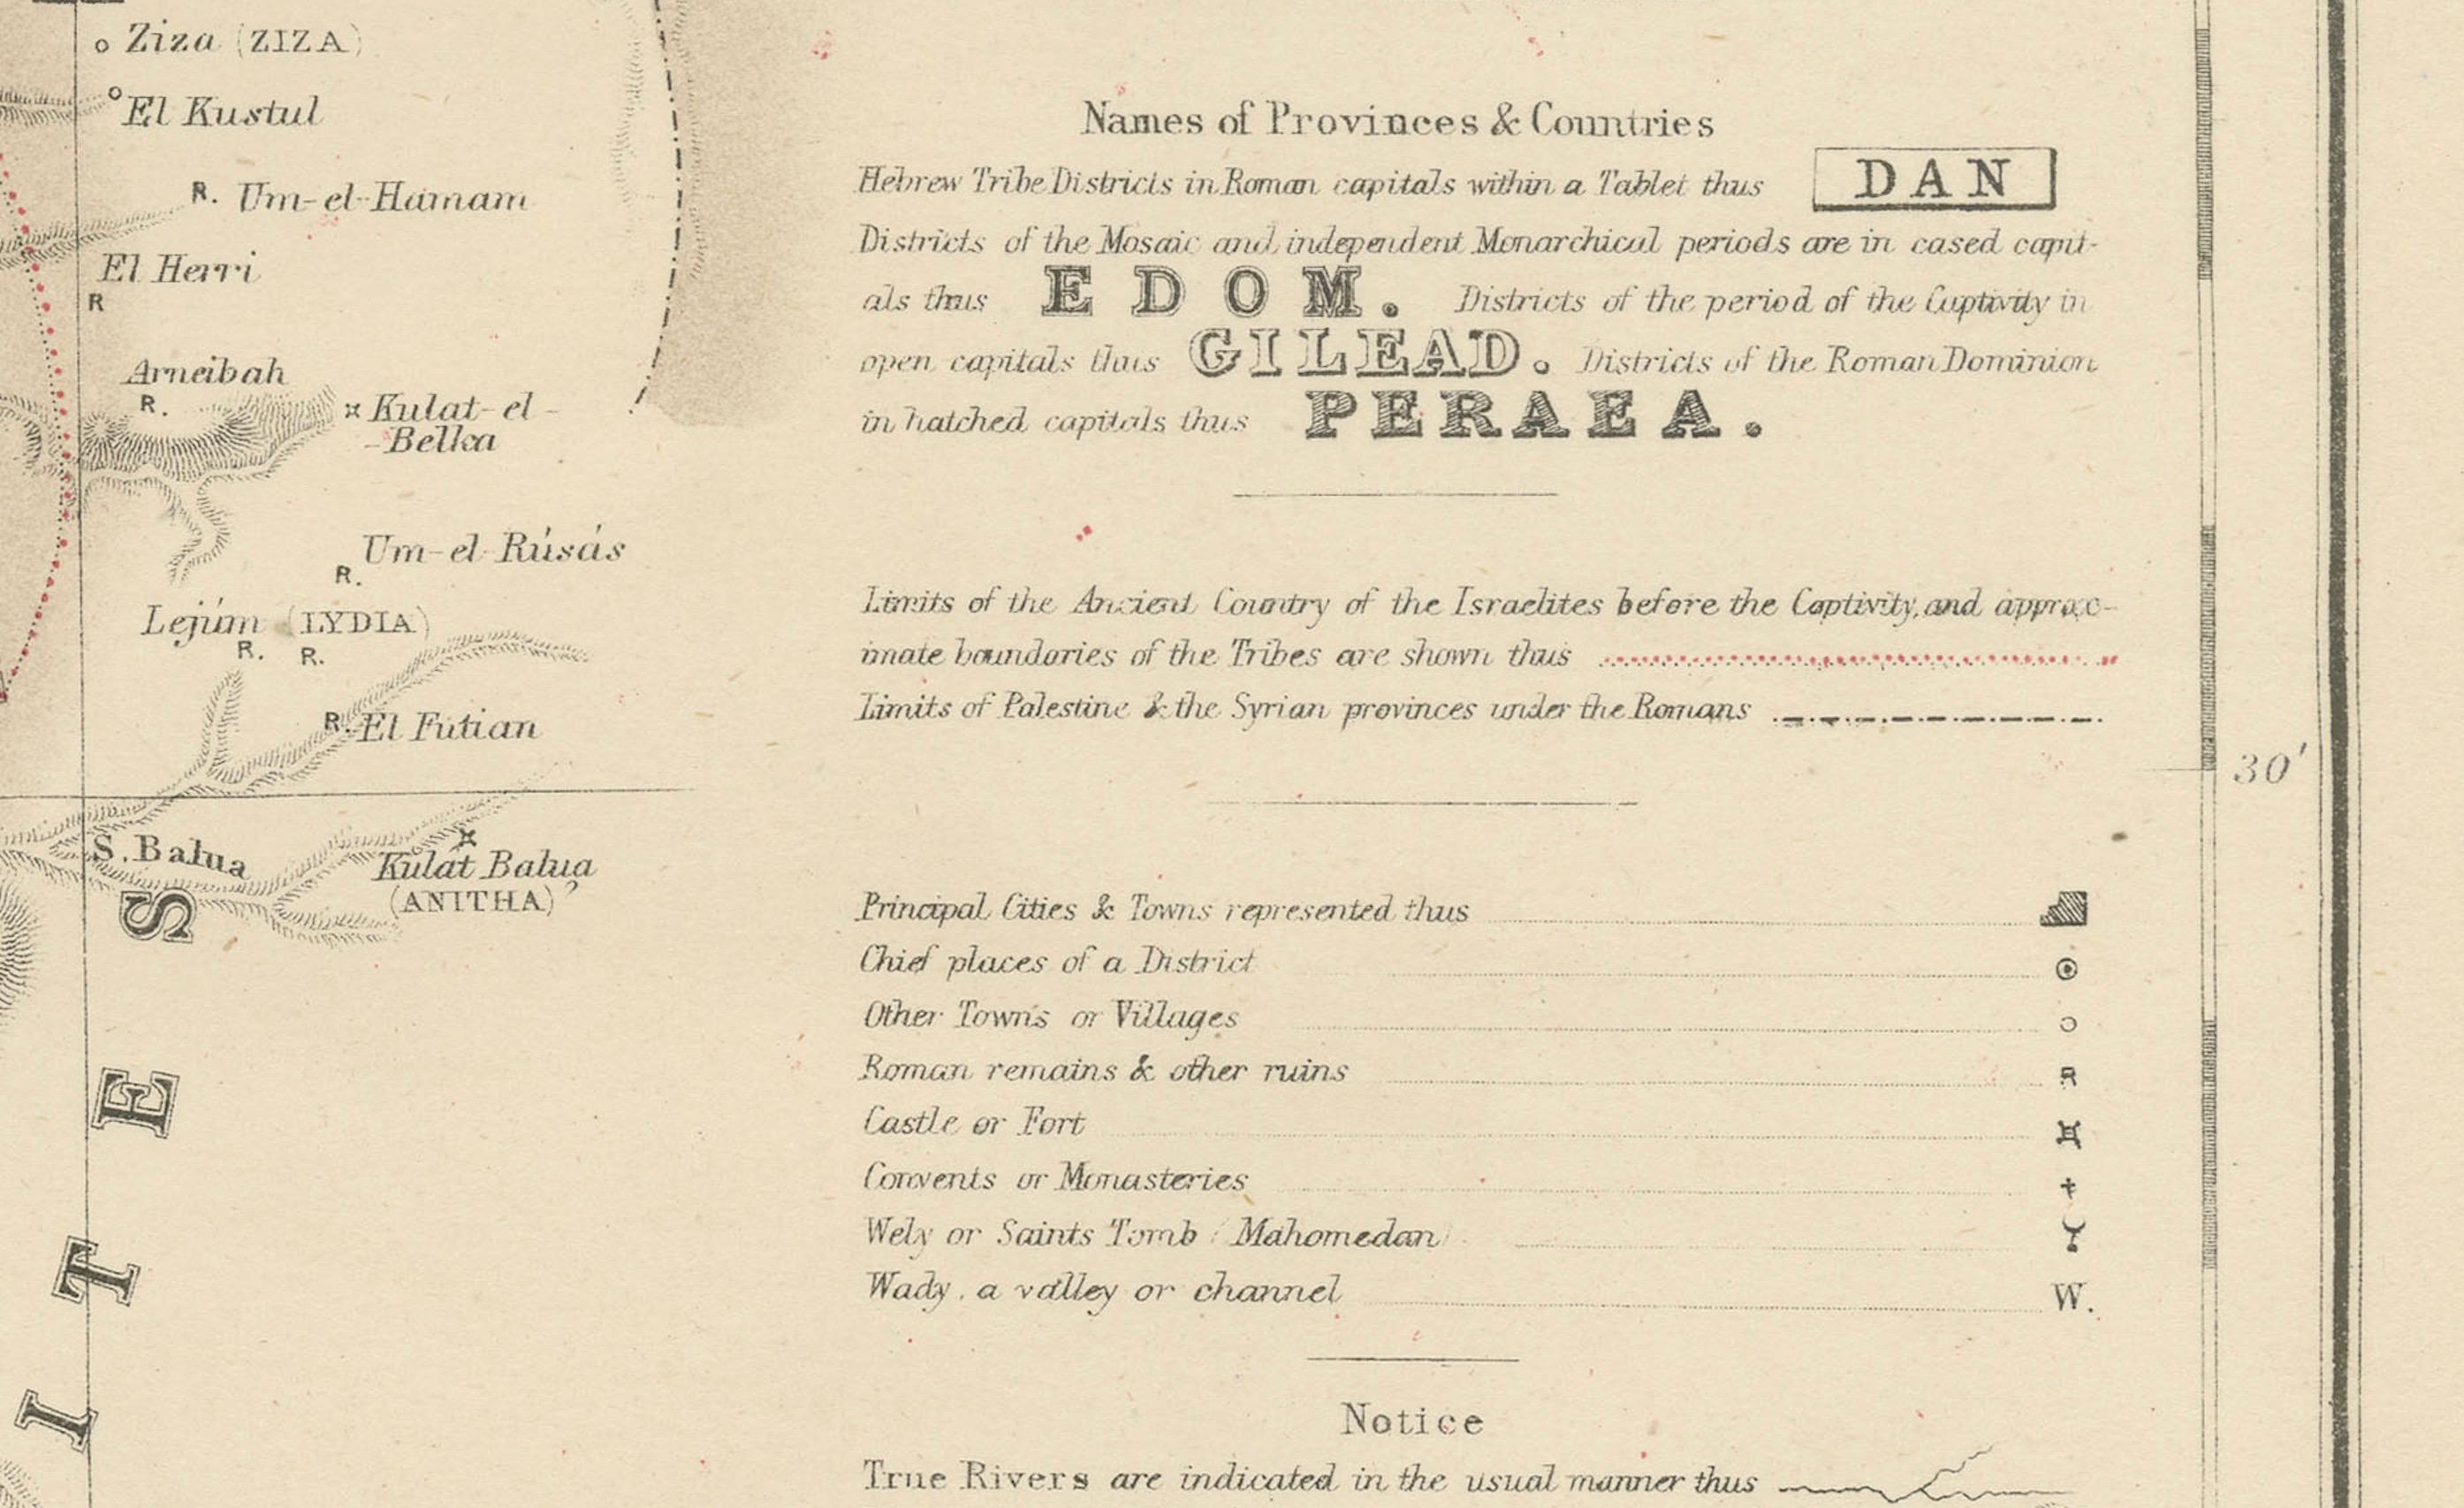 Ziza (ZIZA)
El Kustul
R. Um-el-Hamam
El Herri
R
Arneibah
R.
Kulat-el-
-Belka
Um-el-Rúsás
R.
Lejúm (LYDIA)
R. R.
R. El Futian
S. Balua
Kŭlat Balua
(ANITHA)?
S
E
T
I
Names of Provinces & Countries
Hebrew Tribe Districts in Roman capitals within a Tablet thus DAN
Districts of the Mosaic and independent Monarchical periods are in cased capit-
als thus EDOM. Districts of the period of the Captivity in
open capitals thus GILEAD. Districts of the Roman Dominion
in hatched capitals thus PERAEA.
Limits of the Ancient Country of the Israelites before the Captivity, and approx-
imate boundaries of the Tribes are shown thus
Limits of Palestine & the Syrian provinces under the Romans
30'
Principal Cities & Towns represented thus
Chief places of a District
Other Towns or Villages
Roman remains & other ruins R
Castle or Fort
Convents or Monasteries
Wely or Saints Tomb (Mahomedan)
Wady, a valley or channel W.
Notice
True Rivers are indicated in the usual manner thus